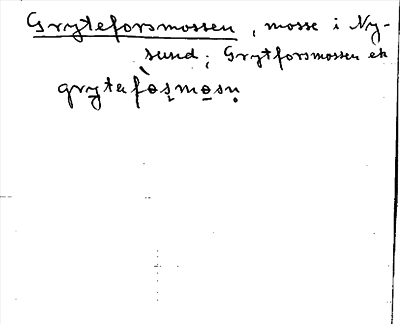 Gryteforsmossen, mosse i Ny-
sund; Grytforsmossen ek
grytafòs̩mo̲sṇ